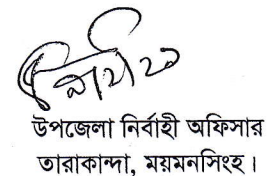 উপজেলা নির্বাহী অফিসার
তারাকান্দা, ময়মনসিংহ।